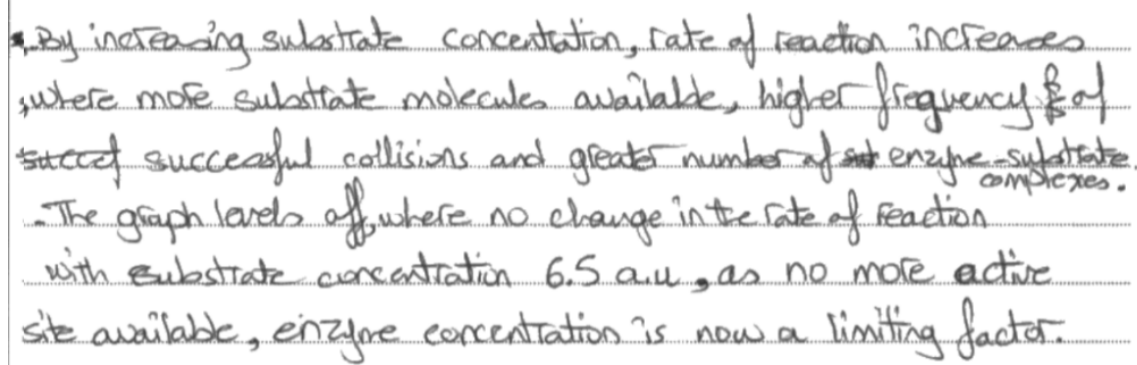 - By increasing substrate concentration, rate of reaction increases
, where more substrate molecules available, higher frequency of
successful collisions and greater number of enzyme-substrate
complexes.
- The graph levels off, where no change in the rate of reaction
with substrate concentration 6.5 a.u, as no more active
site available, enzyme concentration is now a limiting factor.